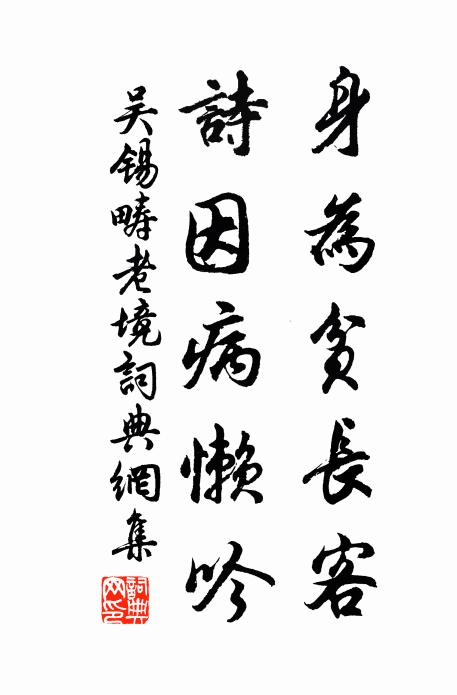 身為貧長客
詩因病懶吟
吳錫疇老境詞典網集
詞典網印